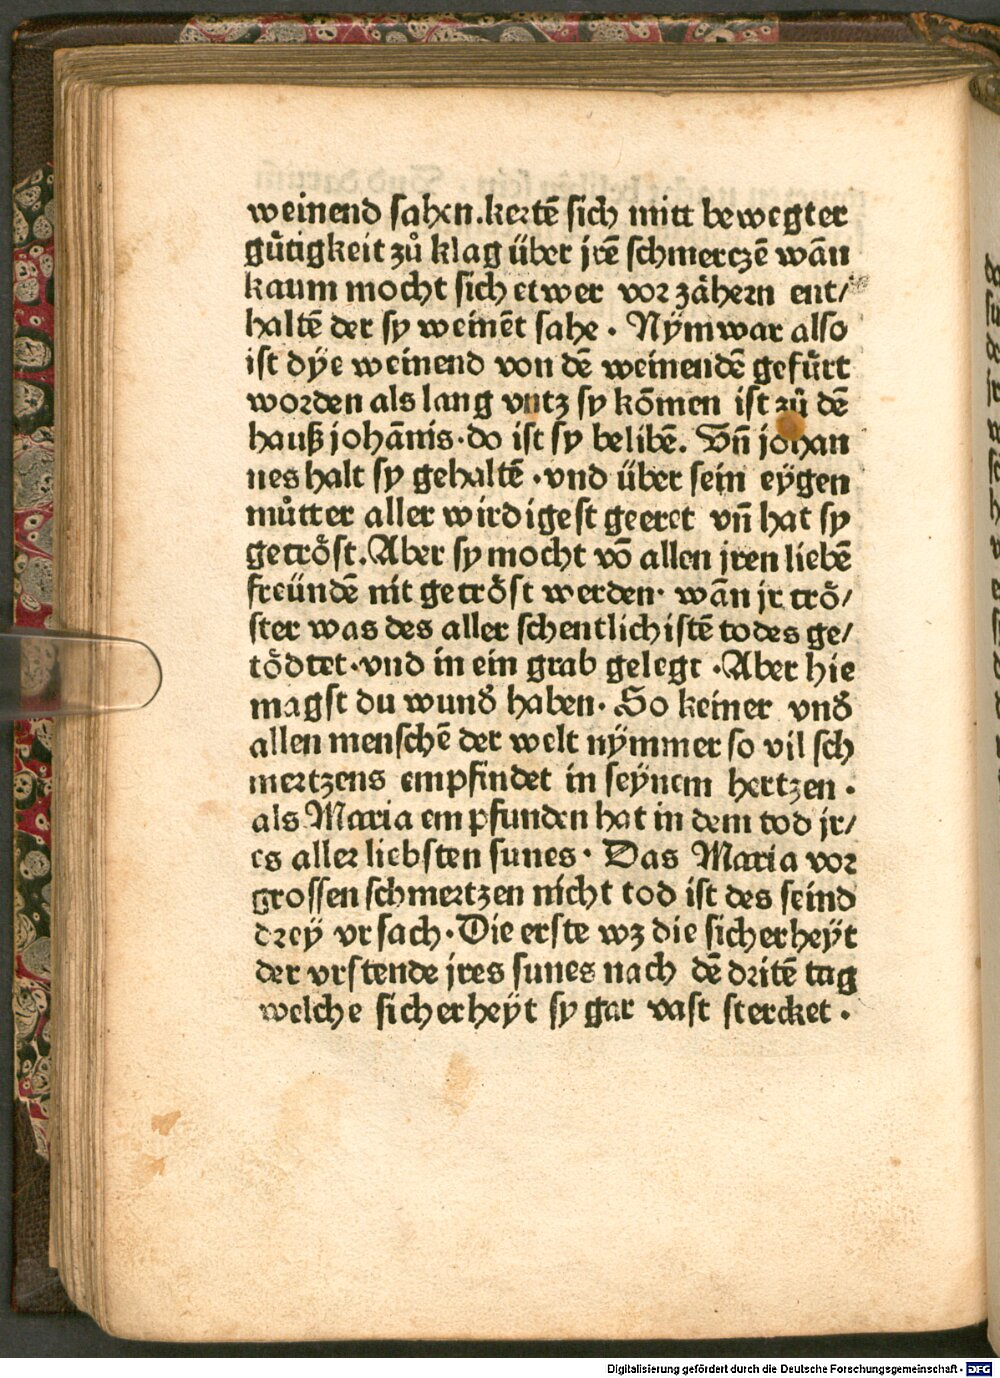 weinend sahen.kertē sich mitt bewegter
gůtigkeit zů klag über jrē schmerczē wān
kaum mocht sich etwer vor zähern ent/
haltē der sy weinēt sahe . Nÿm war also
ist dÿe weinend von dē weinendē gefürt
worden als lang vntz sy kōmen ist zů dē
hauß johānis·do ist sy belibē. Vn̄ johan
nes halt sy gehaltē .vnd über sein eÿgen
můtter aller wirdigest geeret vn̄ hat sy
getröst.Aber sy mocht vō allen jren liebē
freündē nit getröst werden· wān jr trö/
ster was des aller schentlichistē todes ge/
tödtet·vnd in ein grab gelegt .Aber hie
magst du wund̄ haben. So keiner vnd̄
allen menschē der welt nÿmmer so vil sch
mertzens empfindet in seÿnem hertzen .
als Maria empfunden hat in dem tod jr/
es aller liebsten sunes · Das Maria vor
grossen schmertzen nicht tod ist des seind
dreÿ vrsach·Die erste wz die sicherheÿt
der vrstende jres sunes nach dē dritē tag
welche sicherheÿt sy gar vast stercket .
Digitalisierung gefördert durch die Deutsche Forschungsgemeinschaft - DFG